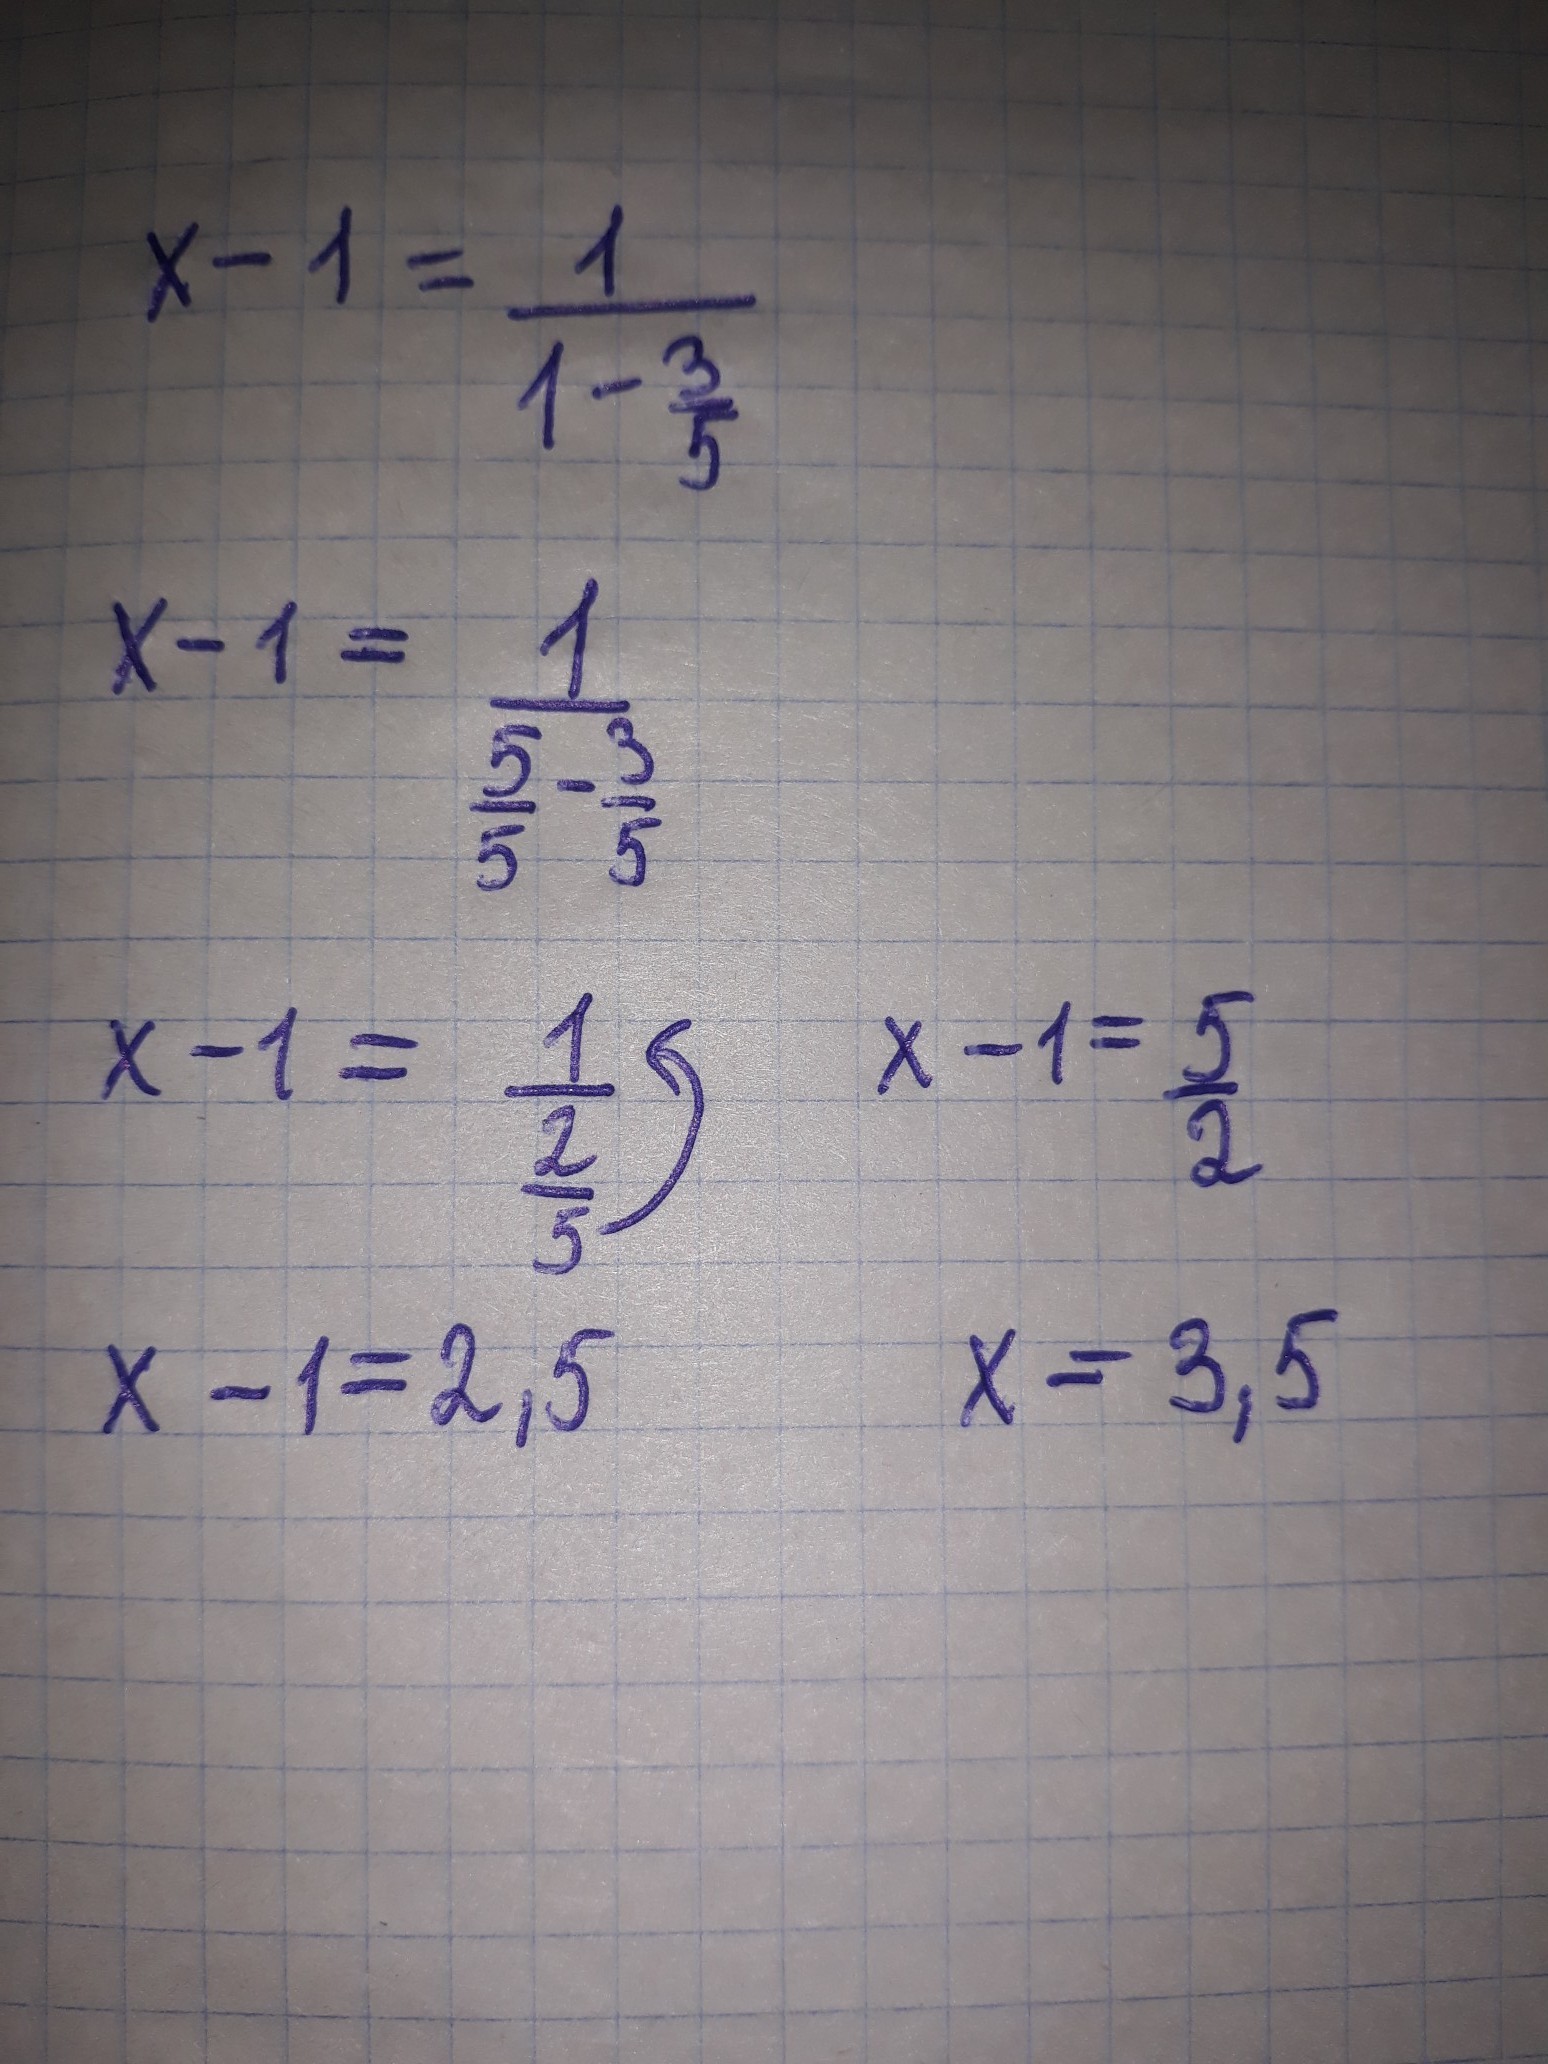 x - 1 = 1 / (1 - 3/5)
x - 1 = 1 / (5/5 - 3/5)
x - 1 = 1 / (2/5) x - 1 = 5/2
x - 1 = 2,5 x = 3,5